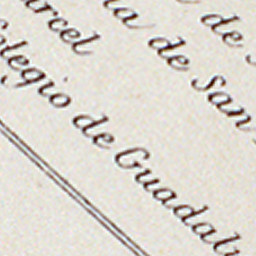 de
arcel
ia de San
olegio de Guadal